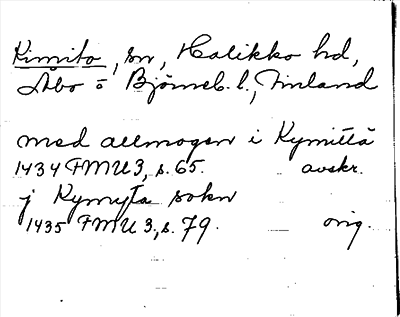 Kimito, sn, Halikko hd,
Åbo o Björneb. l., Finland
med allmogen i Kymittä
1434 FMU 3, s. 65. avskr.
j Kymyta sokn
1435 FMU 3, s. 79. orig.